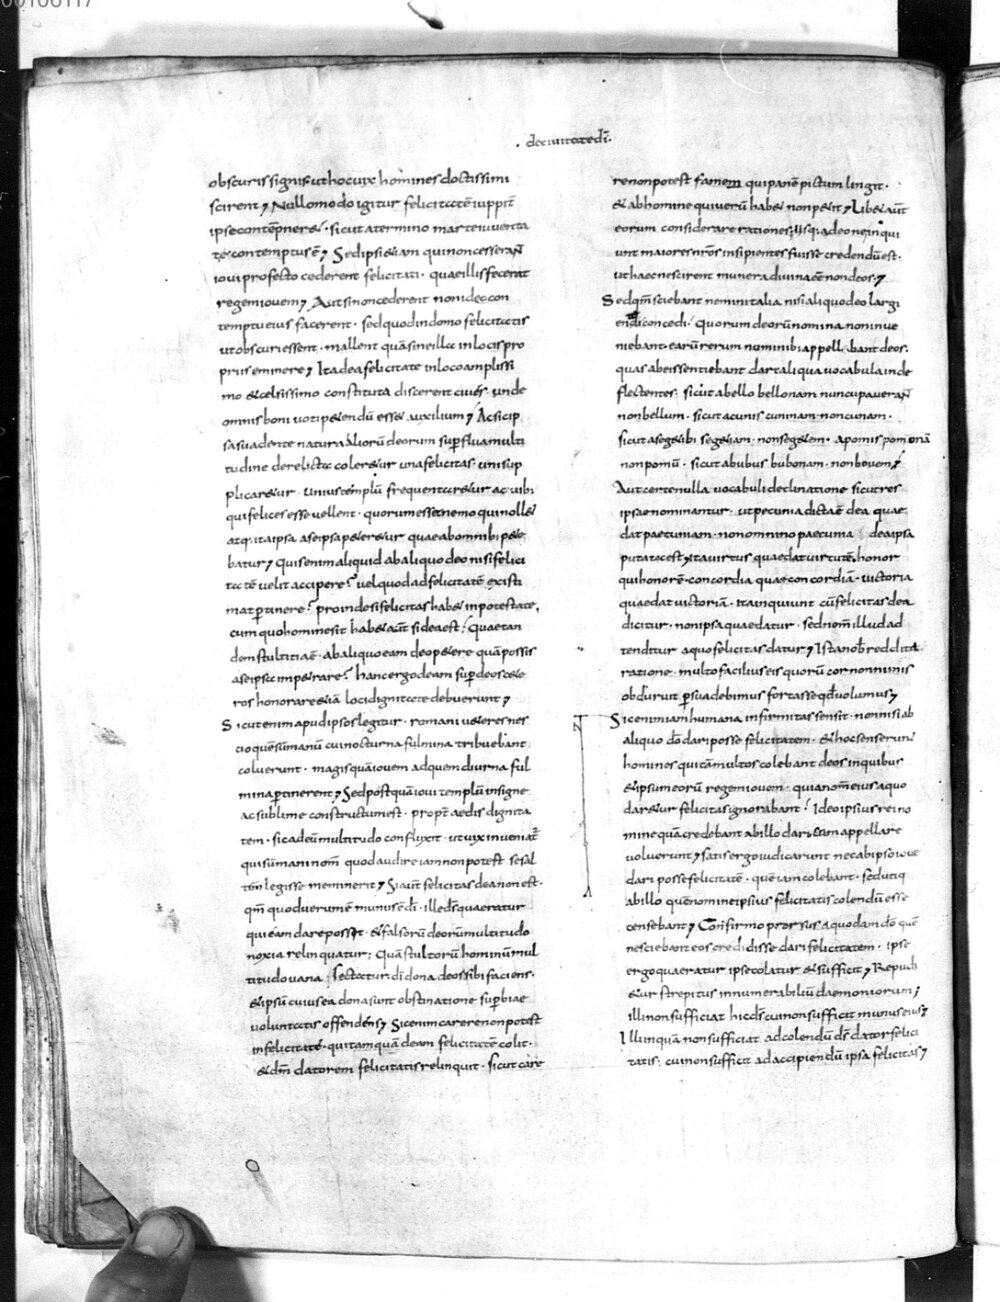 00106117
· deciuitatedī.
obscuris signis ut hoc uix homines doctissimi
scirent; Nullo modo igitur felicitatē iuppit̄
ipse contēpneret · sicut a termino marte iuuenta
te contemptus ē; Sed ipsi etiam qui non cesserant
ioui profecto cederent felicitati · quae illis fecerat
regem iouem; Aut si non cederent non id eo con
temptu eius facerent · sed quod in domo felicitatis
ut obscuri essent · mallent quā sine illa in locis pro
priis eminere; Ita dea felicitate in loco amplissi
mo & celsissimo constituta discerent ciues · unde
omnis boni uoti petendū esset auxilium; Ac sic ip
sa suadente natura aliorū deorum superflua multi
tudine derelicta coleretur una felicitas · uni sup
plicaretur · unius templū frequentaretur a ciuibꝰ
qui felices esse uellent · quorum esset nemo qui nollet
atq· ita ipsa a se ipsa peteretur quae ab omnibꝰ pete
batur; Quis enim aliquid ab aliquo deo nisi felici
tatē uelit accipere? uel quod ad felicitatē existi
mat pertinere? proinde si felicitas habet in potestate,
cum quo homine sit habet aut̄ si dea est? Quae tan
dem stultitia ē · ab aliquo eam deo petere quā possis
a se ipsa impetrare? hanc ergo deam super deos cete
ros honorare etiā loci dignitate debuerunt;
Sicut enim apud ipsos legitur · romani ueteres nes
cio quē sūmanū cui nocturna fulmina tribuebant
coluerunt · magis quā iouem ad quem diurna ful
mina pertinerent; Sed postquā ioui templū insigne
ac sublime constructum est · propt̄ aedis dignita
tem · sic ad eū multitudo confluxit · ut uix inueniat̄
qui sūmani nom̄ quod audire iam non potest se sal
tem legisse meminerit; Si aut̄ felicitas dea non est ·
qm̄ quod uerum ē munus ē dī · ille ds̄ quaeratur
qui eam dare possit · & falsorū deorū multitudo
noxia relinquatur; quā stultorū hominū mul
titudo uana sectatur · dī dona deos sibi faciens ·
& ipsū cuius ea dona sunt obstinatione superbiae
uoluntatis offendens; Sic enim carere non potest
infelicitate · qui tamquā deam felicitatē colit ·
& dm̄ datorem felicitatis relinquit · sicut care
re non potest famem qui panē pictum lingit ·
& ab homine qui uerū habet non petit; Libet aut̄
eorum considerare rationes; usq· adeone inqui
unt maiores nr̄os insipientes fuisse credendū est ·
ut haec nescirent munera diuina ēē non deos;
Sed qm̄ sciebant nemini talia nisi aliquo deo largi
endi concedi · quorum deorū nomina non inue
niebant · earū rerum nominibꝰ appellabant deos ·
quas ab eis sentiebant dari aliqua uocabula inde
flectentes · sicut a bello bellonam nuncupauerant
non bellum · sicut a cunis cuninam · non cunam ·
sicut a segetibꝰ segetiam · non segetem · a pomis pomonā
non pomū · sicut a bubus bubonam · non bouem;
Aut certe nulla uocabuli declinatione sicut res
ipsae nominantur · ut pecunia dicta ē dea quae
dat paecuniam · non omnino paecunia dea ipsa
putata est; ita uirtus quae dat uirtutē · honor
qui honorē · concordia quae concordiā · uictoria
quae dat uictoriā · ita inquiunt cū felicitas dea
dicitur · non ipsa quae datur · sed nom̄ illud ad
tenditur a quo felicitas datur; Ista nob̄ reddita
ratione · multo facilius eis quorū cor non nimis
obduruit persuadebimus fortasse qđ uolumus;
Si enim iam humana infirmitas sensit · non nisi ab
aliquo dō dari posse felicitatem · & hoc senserunt
homines qui tā multos colebant deos in quibus
& ipsum eorū regem iouem · quia nom̄ eius a quo
daretur felicitas ignorabant? Ideo ipsius rei no
mine quā credebant ab illo dari eam appellare
uoluerunt; satis ergo iudicarunt nec ab ipso ioue
dari posse felicitatē · quē iam colebant · sed utiq·
ab illo quē nomine ipsius felicitatis colendū esse
censebant; Confirmo prorsus a quodam dō quē
nesciebant eos credidisse dari felicitatem · ipse
ergo quaeratur ipse colatur & sufficit; Repudi
etur strepitus innumerabiliū daemoniorum;
illi non sufficiat hic ds̄ cui non sufficit munus eius;
Illi inquā non sufficiat ad colendū ds̄ dator felici
tatis · cui non sufficit ad accipiendū ipsa felicitas;